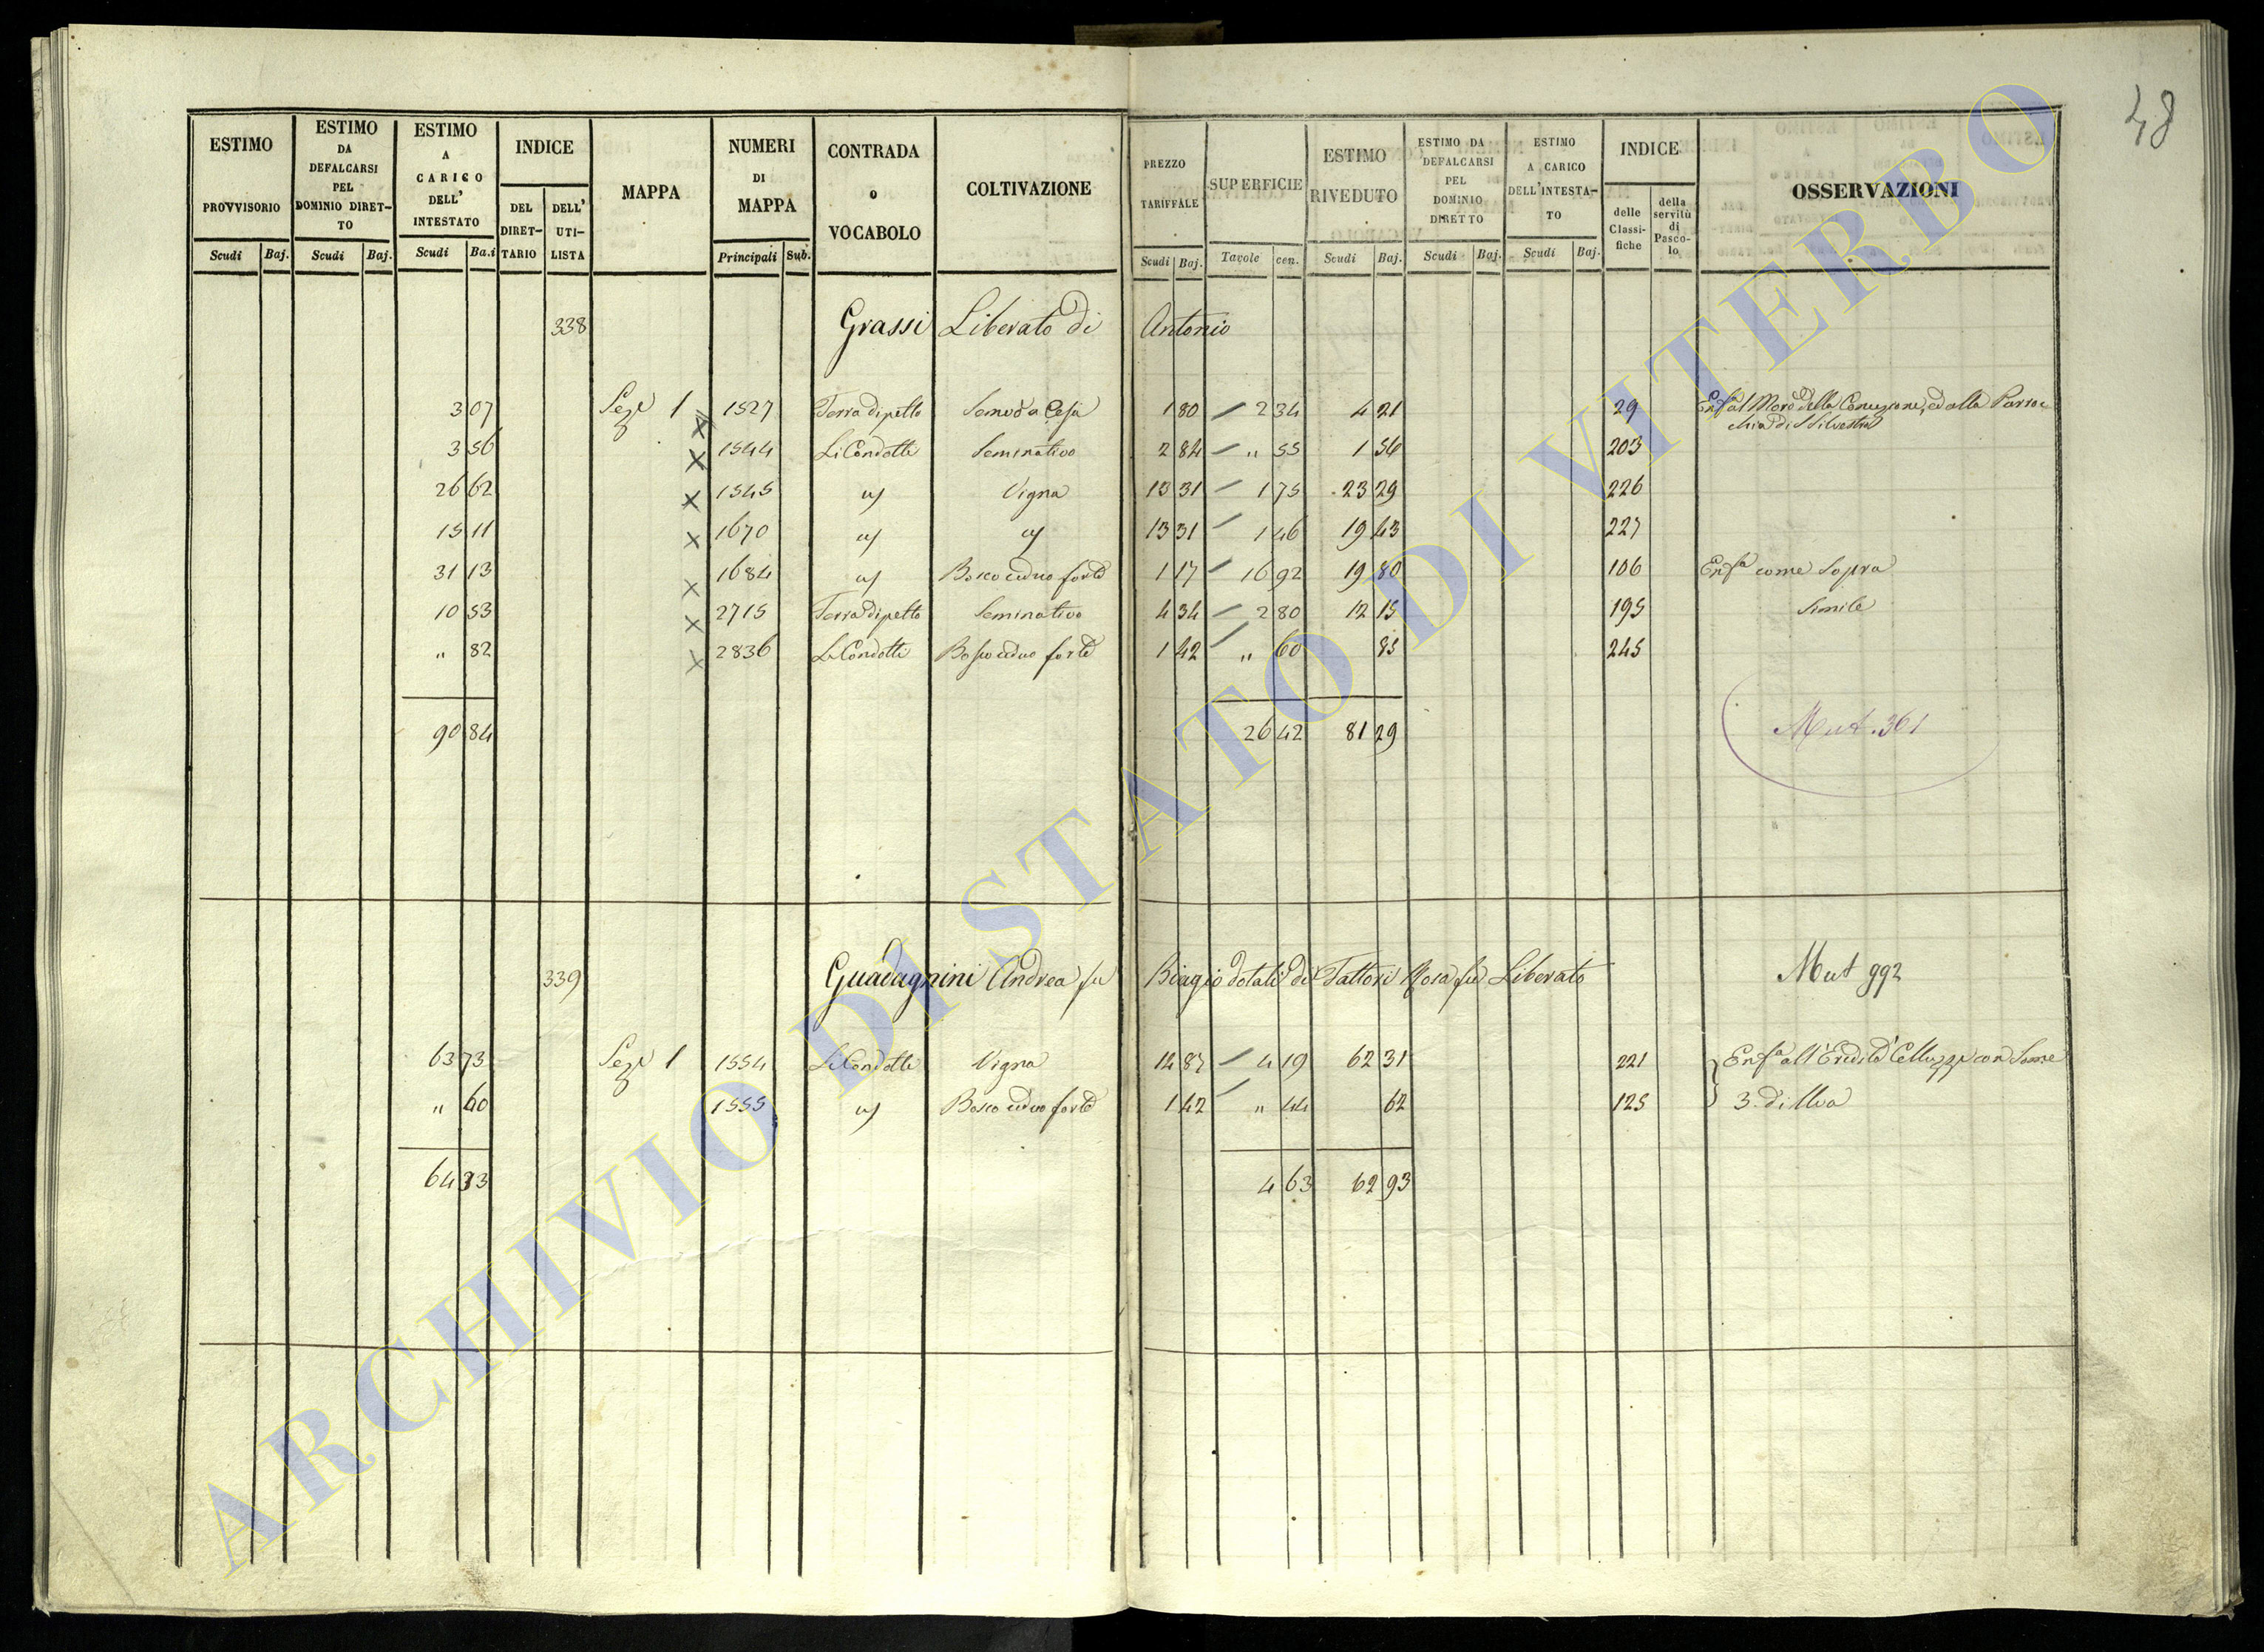 48
ESTIMO PROVVISORIO Scudi Baj.
ESTIMO DA DEFALCARSI PEL DOMINIO DIRET-TO Scudi Baj.
ESTIMO A CARICO DELL' INTESTATO Scudi Ba.i
INDICE DEL DIRET-TARIO DELL' UTI-LISTA
MAPPA
NUMERI DI MAPPA Principali Sub.
CONTRADA o VOCABOLO
COLTIVAZIONE
PREZZO TARIFFALE Scudi Baj.
SUPERFICIE Tavole cen.
ESTIMO RIVEDUTO Scudi Baj.
ESTIMO DA DEFALCARSI PEL DOMINIO DIRETTO Scudi Baj.
ESTIMO A CARICO DELL'INTESTA-TO Scudi Baj.
INDICE delle Classi-fiche della servitù di Pasco-lo
OSSERVAZIONI
338 Grassi Liberato di Antonio
3 07 Sez.e 1 1527 Terra di petto 1 80 2 34 4 21 29 Enf.a al della Concezione, ed alla Parroc
chia di S Silvestro
3 56 1544 Li Condotti Seminativo 2 84 " 55 1 56 203
26 62 1545 " Vigna 13 31 1 75 23 29 226
15 11 1670 " " 13 31 1 46 19 43 227
31 13 1684 " Bosco ceduo forte 1 17 16 92 19 80 106 Enf.a come Sopra
10 53 2715 Terra di petto Seminativo 4 34 2 80 12 15 195 Simile
" 82 2836 Li Condotti Bosco ceduo forte 1 42 " 60 85 245
90 84 26 42 81 29 Mut. 361
339 Guadagnini Andrea fu Biagio dotali di Fattori Rosa fu Liberato Mut 992
63 73 Sez.e 1 1554 Li Condotti Vigna 14 87 4 19 62 31 221 Enf.a all'Eredità Celluzzi con Some
" 60 1555 " Bosco ceduo forte 1 42 " 44 62 125 3. di Uva
64 33 4 63 62 93
ARCHIVIO DI STATO DI VITERBO